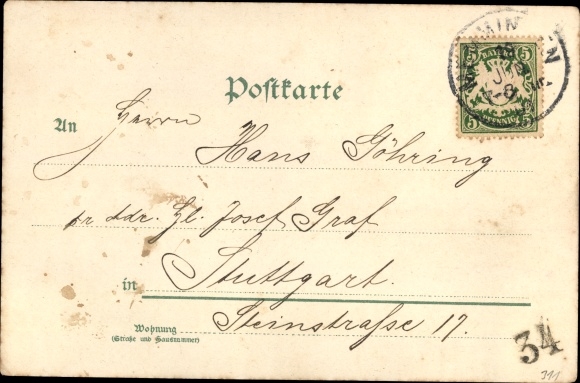 Postkarte
5 BAYERN 5
5 PFENNIG 5
An Herrn
Hans Göhring
pr Adr. Hl. Josef Graf
in Stuttgart.
Wohnung Steinstraße 17.
(Straße und Hausnummer)
34
311